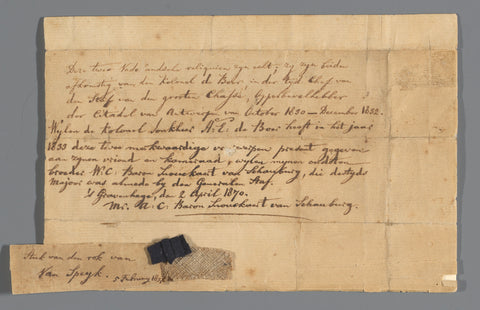 Deze twee Vaderlandsche reliquien zyn echt; zy zyn beiden
afkomstig van den Kolonel de Boer, in der tyd Chef van
den Staf van den grooten Chassé, Opperbevelhebber
der Citadel van Antwerpen van October 1830 — December 1832.
Wylen de Kolonel Jonkheer de Boer heeft in het jaar
1833 deze twee merkwaardige voorwerpen present gegeven
aan zynen vriend en kameraad, wylen mynen oudsten
broeder W. C. Baron Snouckaert van Schauburg, die destyds
Majoor was almede by den Generalen Staf.
's Gravenhage, den 2 April 1870.
Mr. R. C. Baron Snouckaert van Schauburg.
Stuk van den rok van
Van Speyk. 5 February